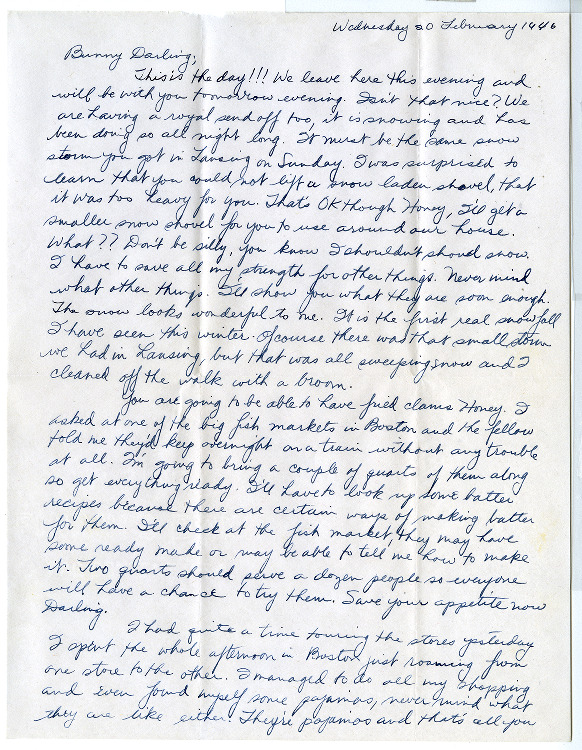 Wednesday 20 February 1946
Bunny Darling;
This is the day!!! We leave here this evening and
will be with you tomorrow evening. Isn't that nice? We
are having a royal send off too, it is snowing and has
been doing so all night long. It must be the same snow
storm you got in Lansing on Sunday. I was surprised to
learn that you could not lift a snow laden shovel, that
it was too heavy for you. That's OK though Honey, I'll get a
smaller snow shovel for you to use around our house.
What?? Don't be silly, you know I shouldn't shovel snow.
I have to save all my strength for other things. Never mind
what other things. I'll show you what they are soon enough.
The snow looks wonderful to me. It is the first real snow fall
I have seen this winter. Ofcourse there was that small storm
we had in Lansing, but that was all sweeping snow and I
cleaned off the walk with a broom.
You are going to be able to have fried clams Honey. I
asked at one of the big fish markets in Boston and the fellow
told me they'd keep overnight on a train without any trouble
at all. I'm going to bring a couple of quarts of them along
so get everything ready. I'll have to look up some batter
recipes because there are certain ways of making batter
for them. I'll check at the fish market they may have
some ready made or may be able to tell me how to make
it. Two quarts should serve a dozen people so everyone
will have a chance to try them. Save your appetite now
Darling.
I had quite a time touring the stores yesterday
I spent the whole afternoon in Boston just roaming from
one store to the other. I managed to do all my shopping
and even found myself some pajamas, never mind what
they are like either. They're pajamas and that's all you